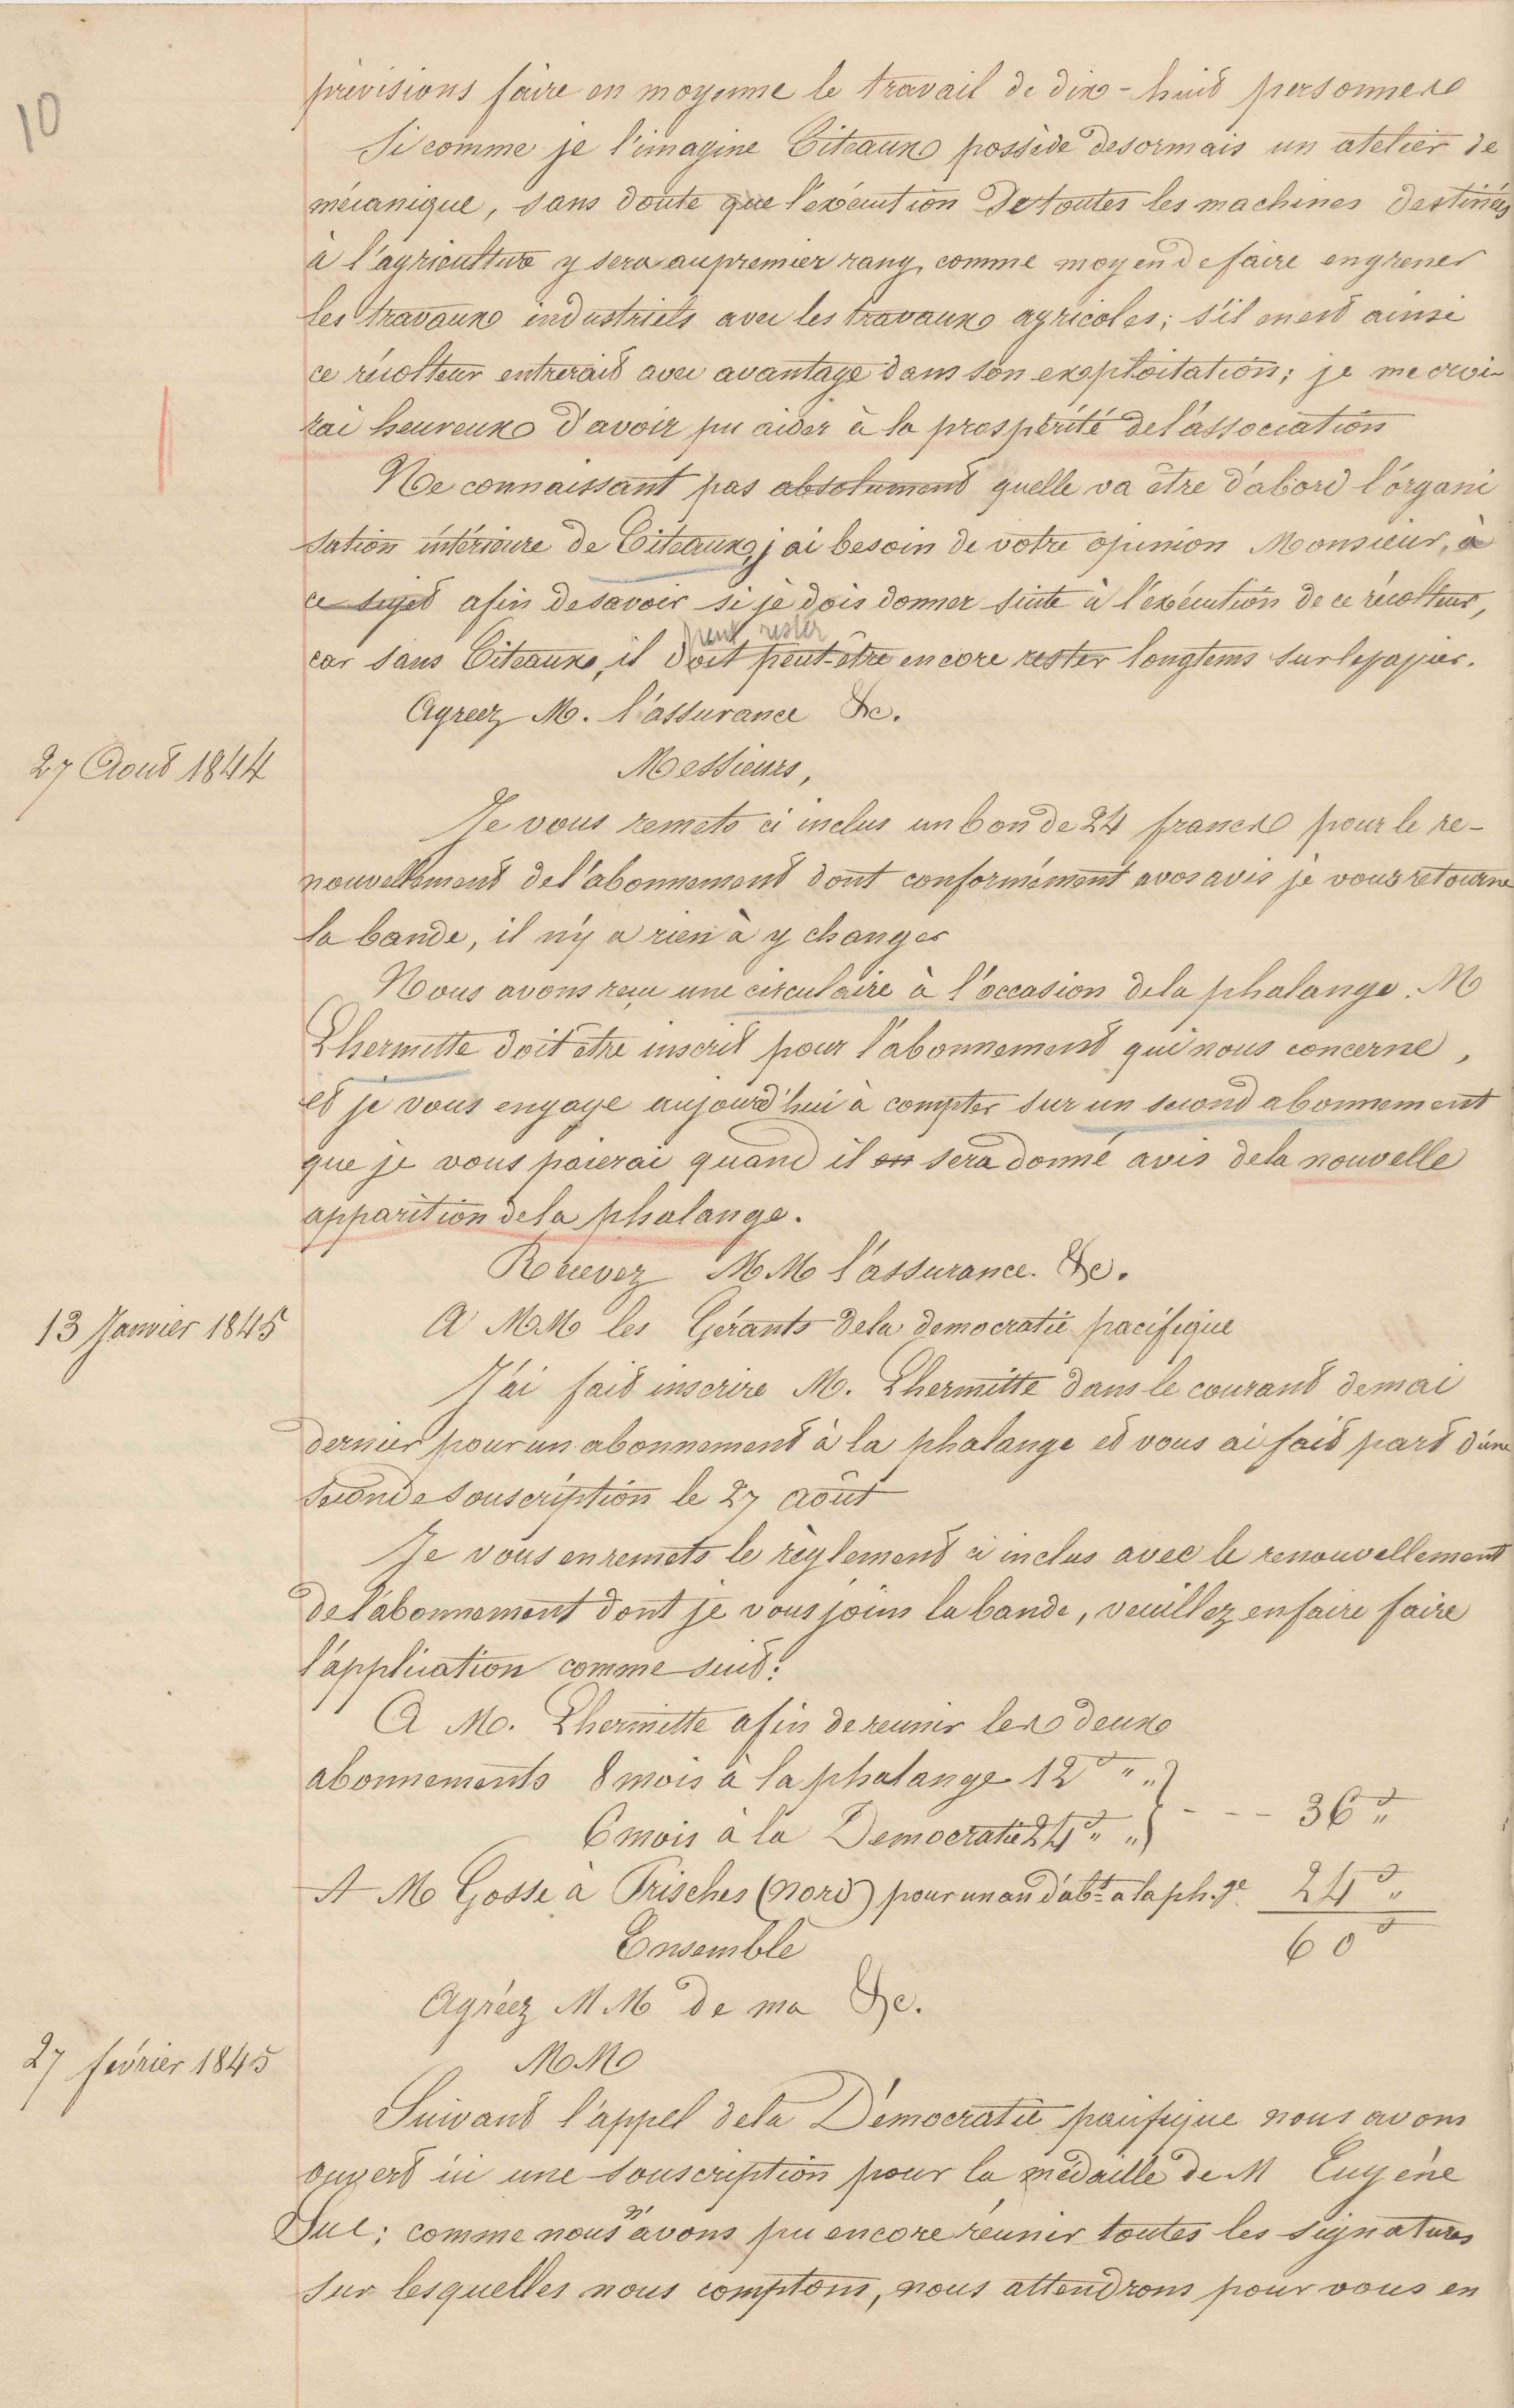 10
prévisions faire en moyenne le travail de dix-huit personnes
Si comme je l'imagine Citeaux possède desormais un atelier de
mécanique, sans doute que l'exécution de toutes les machines destinées
à l'agriculture y sera au premier rang, comme moyen de faire engrener
les travaux industriels avec les travaux agricoles; s'il en est ainsi
ce récolteur entrerait avec avantage dans son exploitation; je me croi-
rai heureux d'avoir pu aider à la prospérité de l'association
Ne connaissant pas absolument quelle va être d'abord l'organi
sation intérieure de Citeaux, j'ai besoin de votre opinion Monsieur, à
ce sujet afin de savoir si je dois donner suite à l'exécution de ce récolteur,
peut rester
car sans Citeaux, il doit peut-être encore rester longtems sur le papier.
Agreez M. l'assurance &c.
27 Aout 1844
Messieurs,
Je vous remets ci inclus un bon de 24 francs pour le re-
nouvellement de l'abonnement dont conformément a vos avis je vous retourne
la bande, il n'y a rien à y changer
Nous avons reçu une circulaire à l'occasion de la phalange. M
Lhermitte doit être inscrit pour l'abonnement qui nous concerne,
et je vous engage aujourd'hui à compter sur un second abonnement
que je vous paierai quand il en sera donné avis de la nouvelle
apparition de la phalange.
Recevez M.M l'assurance. &c.
13 Janvier 1845
A M.M. les Gérants de la democratie pacifique
J'ai fait inscrire M. Lhermitte dans le courant de mai
dernier pour un abonnement à la phalange et vous ai fait part d'une
seconde souscription le 27 août
Je vous en remets le règlement ci inclus avec le renouvellement
de l'abonnement dont je vous joins la bande, veuillez en faire faire
l'application comme suit:
A M. Lhermitte afin de reunir les deux
abonnements 8 mois à la phalange 12f " "
6 mois à la Democratie 24f " " } - - - 36f "
A M Gosse à Prisches (nord) pour un an d'abt a la ph.ge 24f "
Ensemble 60f
Agréez M.M de ma &c.
27 février 1845
M.M.
Suivant l'appel de la Démocratie pacifique nous avons
ouvert ici une souscription pour la médaille de M Eugène
Sue; comme nous n'avons pu encore réunir toutes les signatures
sur lesquelles nous comptons, nous attendrons pour vous en